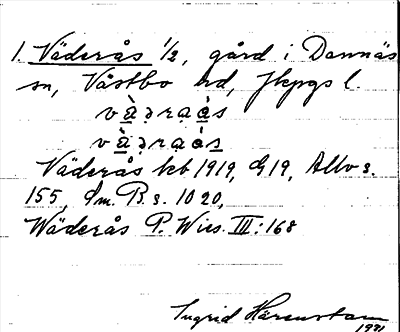 1. Väderås 1/2, gård i Dannäs
sn, Västbo hd, Jkpgs l.
vàdraàs
vàdraàs
Väderås kb 1919, G19, Allvs.
155, Sm. B. s. 1020,
Wäderås P. Wies. III:168
Ingrid Härenstam
1931